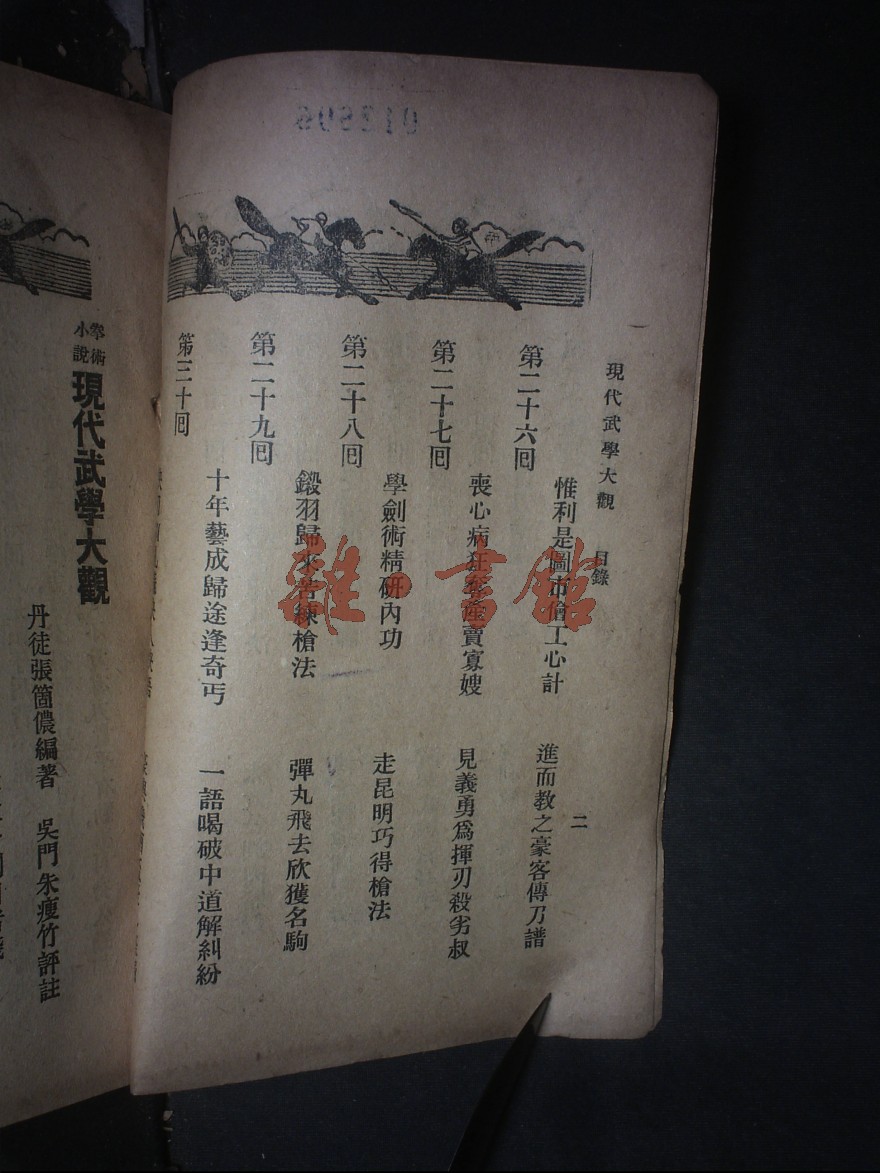 現代武學大觀 目錄 二
第二十六囘 惟利是圖市儈工心計 進而教之豪客傳刀譜
第二十七囘 喪心病狂奪產賣寡嫂 見義勇爲揮刃殺劣叔
第二十八囘 學劍術精研內功 走昆明巧得槍法
第二十九囘 鎩羽歸來苦練槍法 彈丸飛去欣獲名駒
第三十囘 十年藝成歸途逢奇丐 一語喝破中道解糾紛
拳術小說 現代武學大觀
丹徒張箇儂編著 吳門朱瘦竹評註
012808